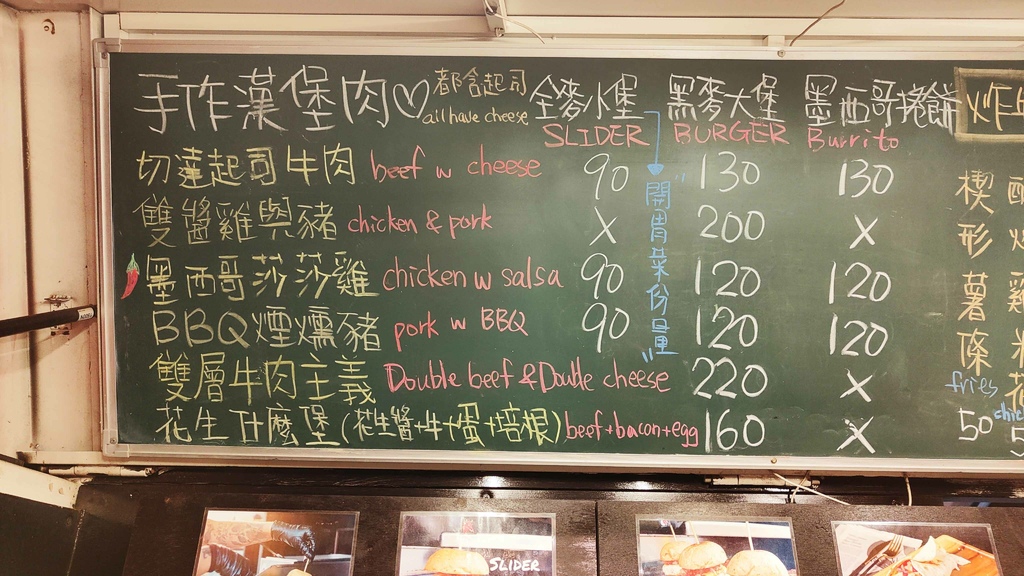 手作漢堡肉♡ 都含起司 全麥小堡 黑麥大堡 墨西哥捲餅
all have cheese SLIDER BURGER Burrito
切達起司牛肉 beef w cheese 90 130 130
雙醬雞與豬 chicken & pork X 200 X
墨西哥莎莎雞 chicken w salsa 90 120 120
BBQ煙燻豬 pork w BBQ 90 120 120
雙層牛肉主義 Double beef & Double cheese 220 X
花生什麼堡(花生醬+牛+蛋+培根) beef+bacon+egg 160 X
"開胃菜份量"
炸
楔形薯條
fries
50
SLIDER